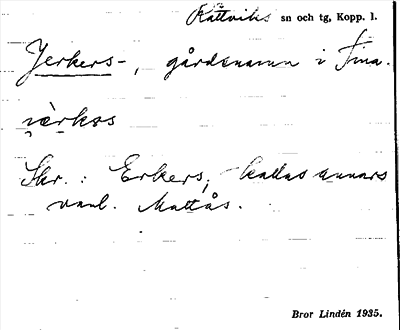 Rättviks sn och tg, Kopp. l.
Jerkers-, gårdsnamn i Fina.
i̯æ̀rkəs
Skr. : Erkers, kallas annars
vanl. Mattås.
Bror Lindén 1935.